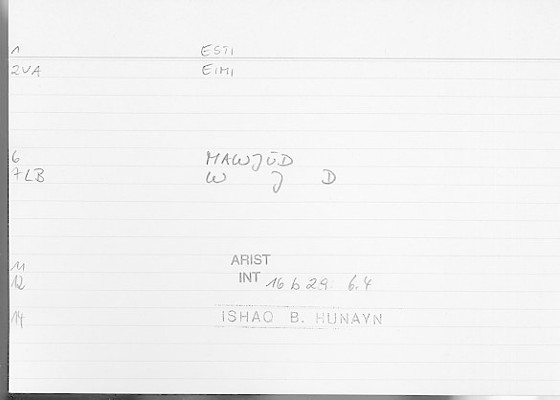 1 ESTI
2VA EIMI
6 MAWJŪD
7LB W J D
11 ARIST
12 INT 16 b 29: 6.4
14 ISHAQ B. HUNAYN